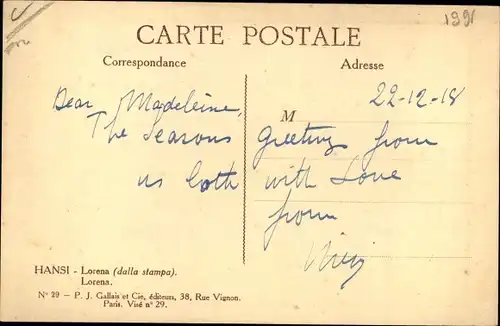 199
CARTE POSTALE
Correspondance
Adresse
22-12-18
M
Dear Madeleine,
The Seasons Greetings from
us both with Love
from
HANSI - Lorena (dalla stampa).
Lorena.
Nº 29 — P. J. Gallais et Cie, éditeurs, 38, Rue Vignon.
Paris. Visé nº 29.